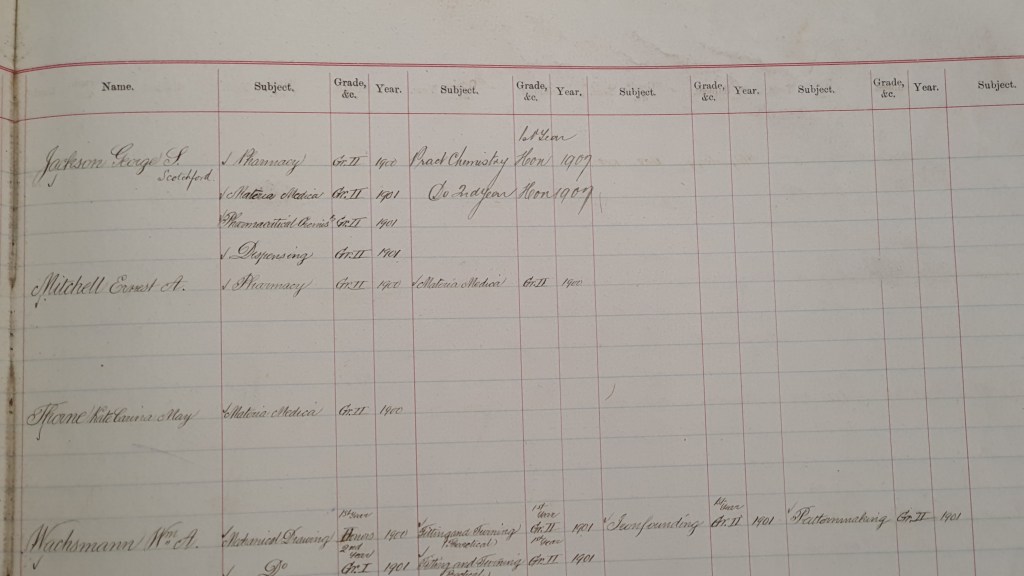 Name. Subject. Grade, &c. Year. Subject. Grade, &c. Year. Subject. Grade, &c. Year. Subject. Grade, &c. Year. Subject.
1st Year
Jackson George S. Pharmacy Gr. II 1900 Pract Chemistry Hon 1907
Scotchford
Materia Medica Gr. II 1901 Do 2nd year Hon 1907
Pharmaceutical Gr. II 1901
Dispensing Gr. II 1901
Mitchell Ernest A. Pharmacy Gr. II 1900 Materia Medica Gr. II 1900
Thorne May Materia Medica Gr. II 1900
1st Year 1st Year 1st Year
Wachsmann Wm A. Mechanical Drawing Honors 1900 Fitting and Turning Gr. II 1901 Ironfounding Gr. II 1901 Patternmaking Gr. II 1901
2nd Year 1st Year
Do Gr. I 1901 Fitting and Turning Gr. II 1901